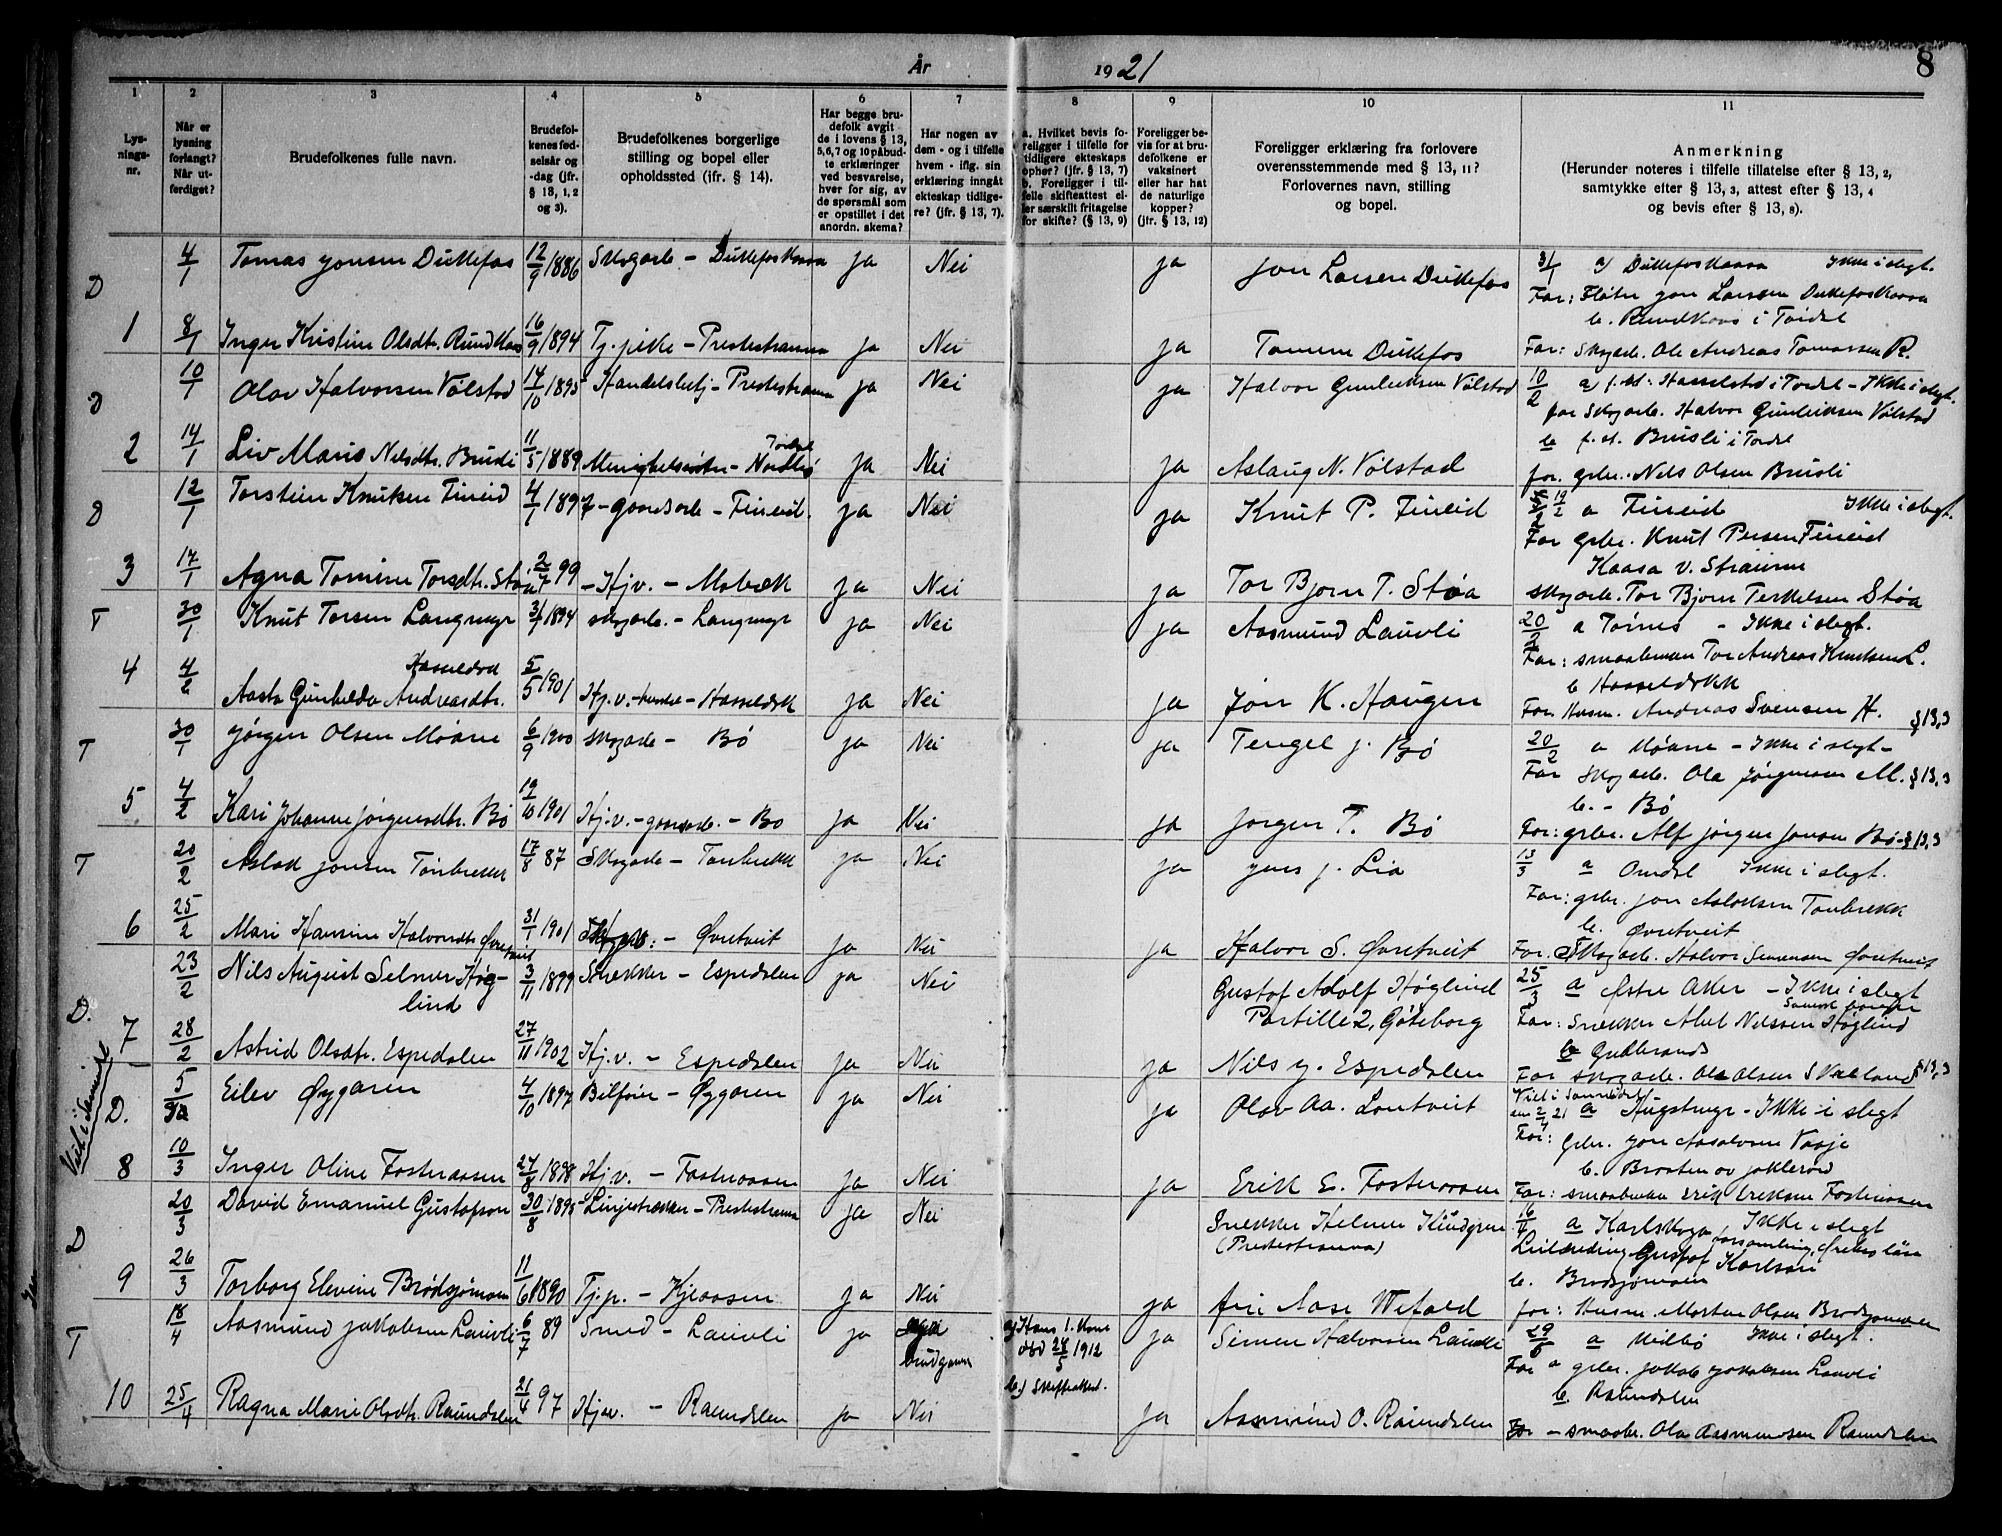 År 1921
8
1
2
3
4
5
6
7
8
9
10
11
Lys-
nings-
nr.
Når er
lysning
forlangt?
Når ut-
ferdiget?
Brudefolkenes fulle navn.
Brudefol-
kenes fød-
selsår og
-dag (jfr.
§ 13, 1, 2
og 3).
Brudefolkenes borgerlige
stilling og bopel eller
opholdssted (ifr. § 14).
Har begge bru-
defolk avgit
de i lovens § 13,
5,6,7 og 10 påbud-
te erklæringer
ved besvarelse,
hver for sig, av
de spørsmål som
er opstillet i det
anordn. skema?
Har nogen av
dem - og i tilfelle
hvem - iflg. sin
erklæring inngåt
ekteskap tidlige-
re? (jfr. § 13, 7).
a. Hvilket bevis fo-
religger i tilfelle for
tidligere ekteskaps
ophør? (jfr. § 13, 7)
b. Foreligger i til-
felle skifteattest el-
ler særskilt fritagelse
for skifte? (§ 13, 9)
Foreligger be-
vis for at bru-
defolkene er
vaksinert
eller har hat
de naturlige
kopper?
(jfr. § 13, 12)
Foreligger erklæring fra forlovere
overensstemmende med § 13, 11?
Forlovernes navn, stilling
og bopel.
Anmerkning
(Herunder noteres i tilfelle tillatelse efter § 13, 2,
samtykke efter § 13, 3, attest efter § 13, 4
og bevis efter § 13, 8).
D 4/1 Tomas Jonsen Dullefos 12/9 1886 Skogarb - Dullefoskaasa ja Nei ja Jon Larsen Dullefos 3/1 a) Dullefoskaasa Ikke i slegt.
Far: Fløter Jon Larsen Dullefoskaasa
b. Rundkaas i Tordal
1 8/1 Inger Kristine Olsdtr. Rundkaas 16/9 1894 Tj. pike - Prestestranna ja Nei ja Tomme Dullefos Far: Skogarb. Ole Andreas Tomassen R.
D 10/1 Olav Halvorsen Vølstad 14/10 1895 Handelsbetj - Prestestranna ja Nei ja Halvor Gunleiksen Vølstad 10/2 a) f. st: Hasselstad i Tordal - Ikke i slegt.
far Skogarb. Halvor Gunleiksen Vølstad
b f. st. Brusli i Tordal
2 14/1 Liv Maris Nilsdtr. Brusli 11/5 1889 Menighetssøster - Tordal Nordbø ja Nei ja Aslaug N. Vølstad far. gbr. Nils Olsen Brusli
D 12/1 Torstein Knutsen Fineid 4/1 1897 - gaardsarb - Fineid. ja Nei ja Knut P. Fineid 19/2 a Fineid Ikke i slegt.
Far Gbr. Knut Persen Fineid
Kaasa v. Straume
3 17/1 Agna Tomine Torsdtr. Støa 2/7 99 - Hj.v. - Mobæk ja Nei ja Tor Bjorn T. Støa skogarb. Tor Bjorn Terkelsen Støa
T 30/1 Knut Torsen Langmyr 3/1 1894 skogarb. - Langmyr ja Nei ja Aasmund Lauvli 20/2 a Tørnes - Ikke i slegt.
Far: smaabrman Tor Andreas Knutsen L.
b Hasseldokk
4 4/2 Aasta Gunhilda Andreasdtr. Hasseldok 5/5 1901 Hj.v. - - Hasseldok ja Nei ja Jøn K. Haugen Far. Husm. Andreas Svensen H. §13,3
T 30/1 Jørgen Olsen Moane 6/9 1900 skogarb - Bø ja Nei ja Tengel J. Bø 20/2 a Moane - Ikke i slegt -
Far Skogarb. Ola Jørgensen M. §13,3
b. - Bø
5 4/2 Kari Johanne Jørgensdtr. Bø 19/10 1901 Hj.v. - gaardarb. - Bø ja Nei ja Jørgen T. Bø Far: gbr. Alf Jørgen Jonsen Bø - §13,3
T 20/2 Aslak Jonsen Tonbrekk 17/8 87 Skogarb - Tonbrekk ja Nei ja Jens J. Lia 13/3 a Omdal Ikke i slegt.
Far: gbr. Jon Aslaksen Tonbrekk
b. Øvretveit
6 25/2 Mari Hansine Halvorsdtr Øvretveit 31/1 1901 - Øvretveit ja Nei ja Halvor S. Øvretveit Far. Skogarb. Halvor Simensen Øvretveit
D. 23/2 Nils August Selmer Høg-
lind 3/11 1899 Snekker - Espedalen ja Nei Gustof Adolf Høglind
Partille 2, Göteborg 25/3 a Østre Aker - Ikke i slegt
Svensk borger
Far: Snekker Abel Nilssen Høglind
b Gudbrands
7 28/2 Astrid Olsdtr. Espedalen 27/11 1902 Hj.v. - Espedalen ja Nei ja Nils J. Espedalen Far skogarb. Ole Olsen Skaland §13,3
Viet i Sannidal
D. 5/3 Eilev Øygaren 4/10 1897 Bilfører - Øygaren ja Nei ja Olav Aa. Lontveit Viet i Sannidal
den 2/4 21 a Haugstmyr - Ikke i slegt
Far: Gbr. Jon Aasolvsen Vasje
b. Braaten av Joklerød
8 10/3 Inger Oline Fosteraasen 27/8 1898 Hj.v. - Fosteraasen ja Nei ja Erik E. Fosteraasen Far: smaabrman Erik Eriksen Fosteraasen
D 20/3 David Emanuel Gustafson 30/8 1895 Linjestrekker - Prestestranna ja Nei Snekker Helmer Kindgren
(Prestestranna) 16/4 a Karlskoga Ikke i slegt
församling, Örebro län
Gustof Karlsson
b. Brødsjømoen
9 26/3 Torborg Elevine Brødsjømoen 11/6 1890 Tj.p. - Kjeaasen ja Nei ja Ani Aase Wefald far: Husm. Morten Olsen Brødsjømoen
T 18/4 Aasmund Jakobsen Lauvli 6/7 89 Smed - Lauvli ja Ja
brudgom a) Hans 1. Kone
død 24/5 1912
b.) Skifteattest. ja Simen Halvorsen Lauvli 29/5 a Midbø Ikke i slegt.
Far a gbr. Jakob Jakobsen Lauvli
b. Raundalen
10 25/4 Ragna Marie Olsdtr. Raundalen 21/4 97 Hj.v. - Raundalen ja Nei ja Aasmund O. Raundalen Far - smaabr. Ola Aasmundsen Raundalen